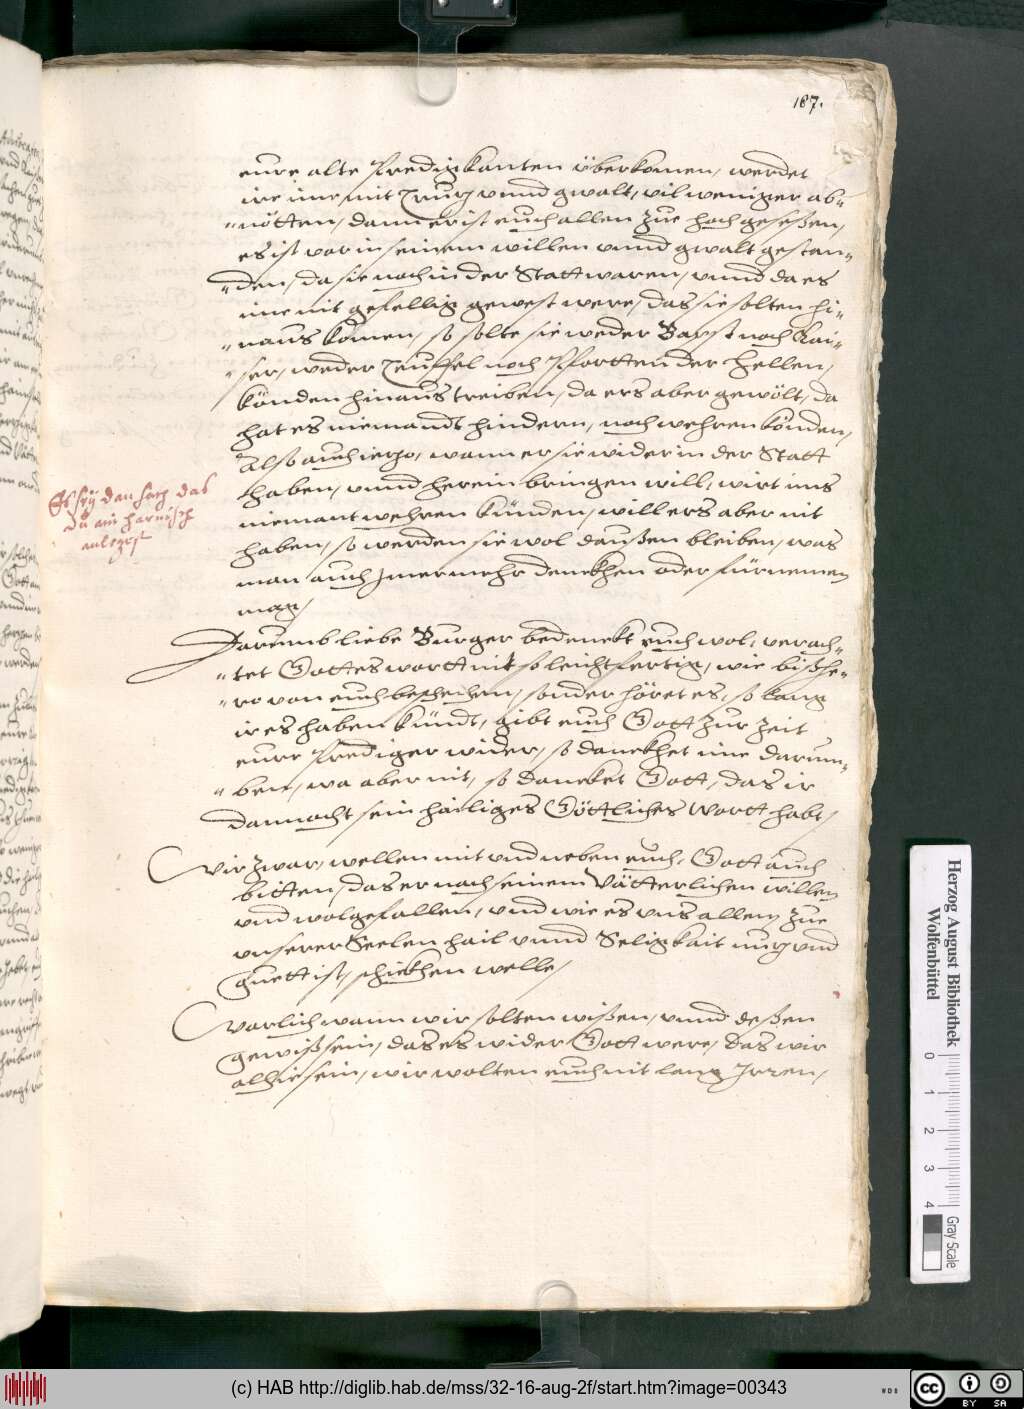 187.
eure alte Predigkanten überkomen, werdet
ir ime mit Trutz vnnd gwalt, vil weniger ab-
-nötten, dann er ist euch allen zue hoch geseßen,
es ist vor in seinem willen vnnd gwalt gestan-
-den, da sie noch in der Statt waren, vnnd da es
ime nit gefellig gewest were, das sie solten hi-
-naus komen, so solte sie weder Bapst noch Kai-
-ser, weder Teuffel noch Pfortten der Hellen,
könden hinaus treiben, da ers aber gewölt, da
hat es niemandt hindern, noch wehren könden,
Also auch ietzo, wann er sie wider in der Statt
haben, vnnd herein bringen will, wirt ims
niemant wehren künden, will ers aber nit
haben, so werden sie wol daußen bleiben, was
man auch jmermehr denckhen oder fürnemen
mag,
Es sey dan sach das
du ain harnisch
anlegst
Darumb liebe Burger bedenckt euch wol, verach-
-tet Gottes wortt nit so leichtfertig, wie bißhe-
-ro von euch beschehen, sonder höret es, so lang
ir es haben kündt, gibt euch Gott zur Zeit
eure Prediger wider, so danckhet ime darum-
-ben, wa aber nit, so dancket Gott, das ir
dannocht sein hailiges Göttliches Wortt habt,
Wir zwar, wellen mit vnd neben euch, Gott auch
bitten, das er nach seinem Vätterlichen willen
vnd wolgefallen, vnd wie es vns allen zue
vnserer Seelen hail vnnd Seligkait nutz vnd
guett ist, schickhen welle,
Warlich wann wir solten wißen, vnnd deßen
gewiß sein, das es wider Gott were, das wir
alhie sein, wir wolten euch nit lang Irren,
Herzog August Bibliothek
Wolfenbüttel
0 1 2 3 4
Gray Scale
(c) HAB http://diglib.hab.de/mss/32-16-aug-2f/start.htm?image=00343
WDB
cc BY SA